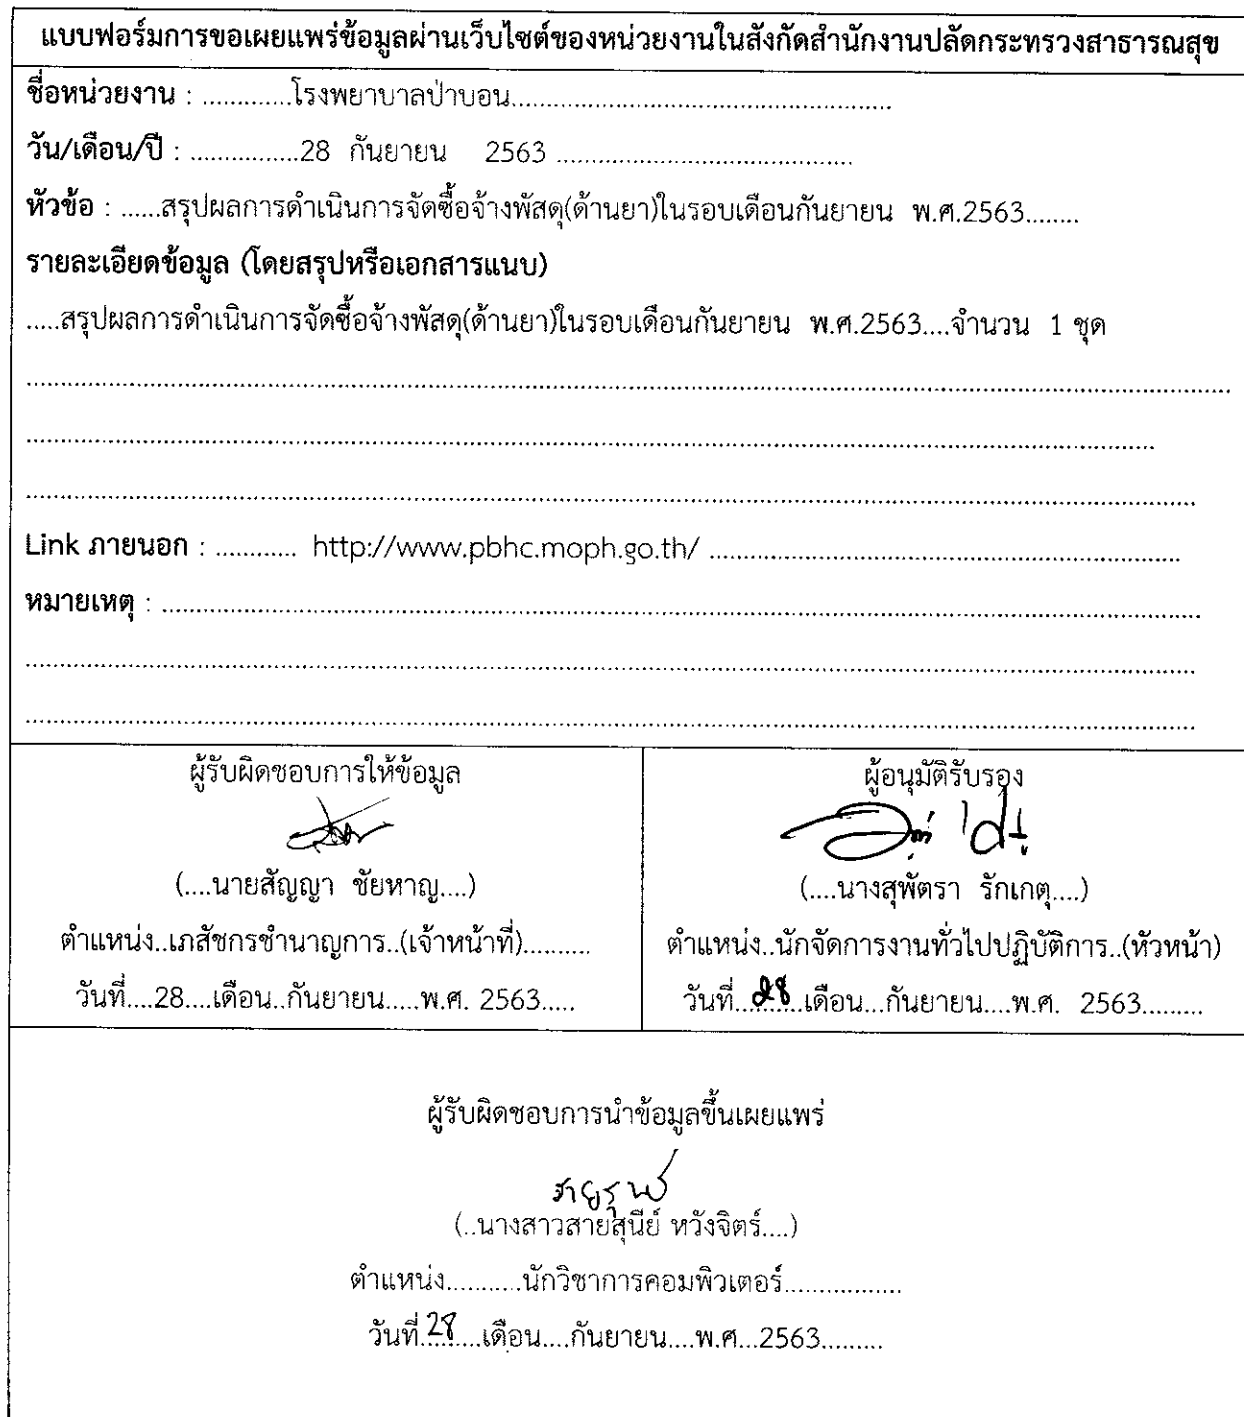 แบบฟอร์มการขอเผยแพร่ข้อมูลผ่านเว็บไซต์ของหน่วยงานในสังกัดสำนักงานปลัดกระทรวงสาธารณสุข
ชื่อหน่วยงาน : .............โรงพยาบาลป่าบอน.......................................................
วัน/เดือน/ปี : ................28 กันยายน 2563 ...........................................
หัวข้อ : ......สรุปผลการดำเนินการจัดซื้อจ้างพัสดุ(ด้านยา)ในรอบเดือนกันยายน พ.ศ.2563........
รายละเอียดข้อมูล (โดยสรุปหรือเอกสารแนบ)
.....สรุปผลการดำเนินการจัดซื้อจ้างพัสดุ(ด้านยา)ในรอบเดือนกันยายน พ.ศ.2563....จำนวน 1 ชุด
Link ภายนอก : ............ http://www.pbhc.moph.go.th/ ....................................................................
หมายเหตุ : ....................................................................
ผู้รับผิดชอบการให้ข้อมูล
(....นายสัญญา ชัยหาญ....)
ตำแหน่ง..เภสัชกรชำนาญการ..(เจ้าหน้าที่)..........
วันที่....28....เดือน..กันยายน.....พ.ศ. 2563.....
ผู้อนุมัติรับรอง
(....นางสุพัตรา รักเกตุ....)
ตำแหน่ง..นักจัดการงานทั่วไปปฏิบัติการ..(หัวหน้า)
วันที่..28..เดือน...กันยายน....พ.ศ. 2563.........
ผู้รับผิดชอบการนำข้อมูลขึ้นเผยแพร่
(..นางสาวสายสุนีย์ หวังจิตร์....)
ตำแหน่ง...........นักวิชาการคอมพิวเตอร์.................
วันที่.28....เดือน....กันยายน....พ.ศ...2563.........